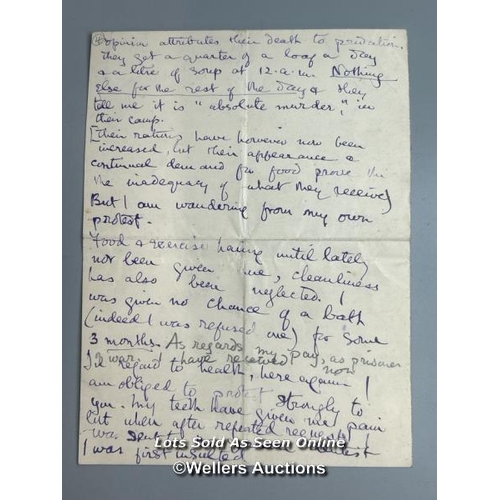 opinion attributes their death to privation.
They get a quarter of a loaf a day
& a litre of soup at 12.a.m. Nothing
else for the rest of the day & they
tell me it is "absolute murder," in
their camp.
[Their rations have however now been
increased, but their appearance &
continual demand for food prove
the inadequacy of what they receive]
But I am wandering from my own
protest.
Food & exercise having until lately
not been given me, cleanliness
has also been neglected. I
was given no chance of a bath
(indeed I was refused one) for some
3 months. As regards my pay, as prisoner
of war, I have received none
In regard to health, here again I
am obliged to protest strongly to
you. My teeth have given me pain
but when after repeated requests I
was sent
I was first insulted
Lots Sold As Seen Online
©Wellers Auctions